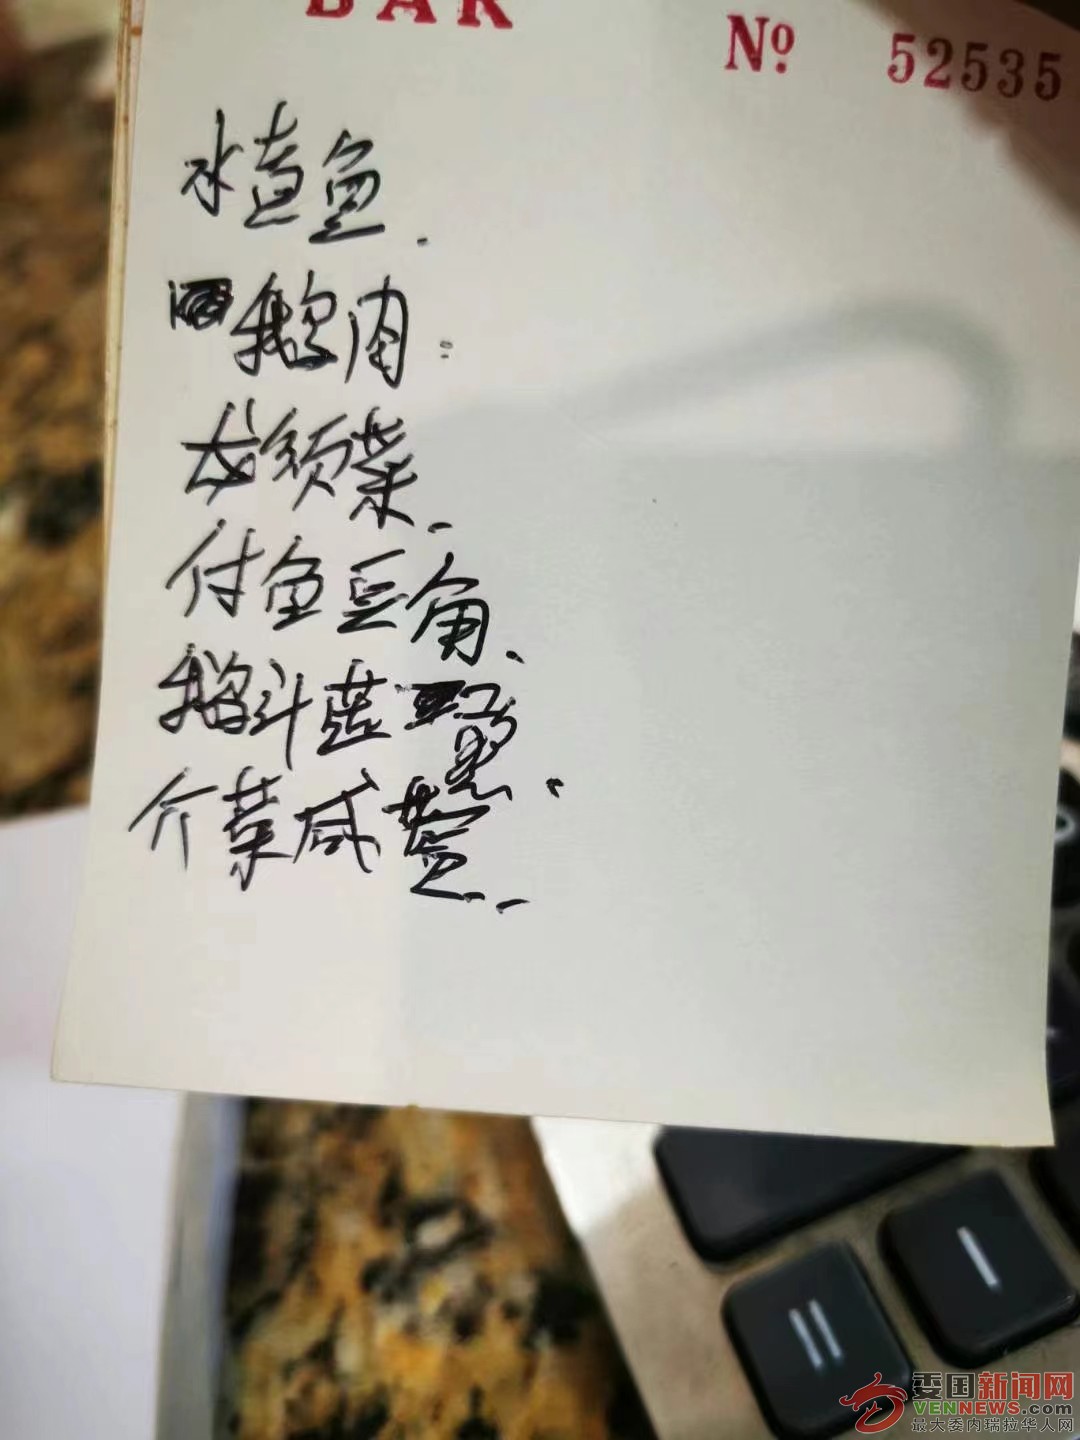 BAR
Nº 52535
水查鱼.
鹅肉.
龙须菜.
付鱼豆角.
鹅斗蓝
介菜咸蛋..
委国新闻网
VENNEWS.com
最大委内瑞拉华人网